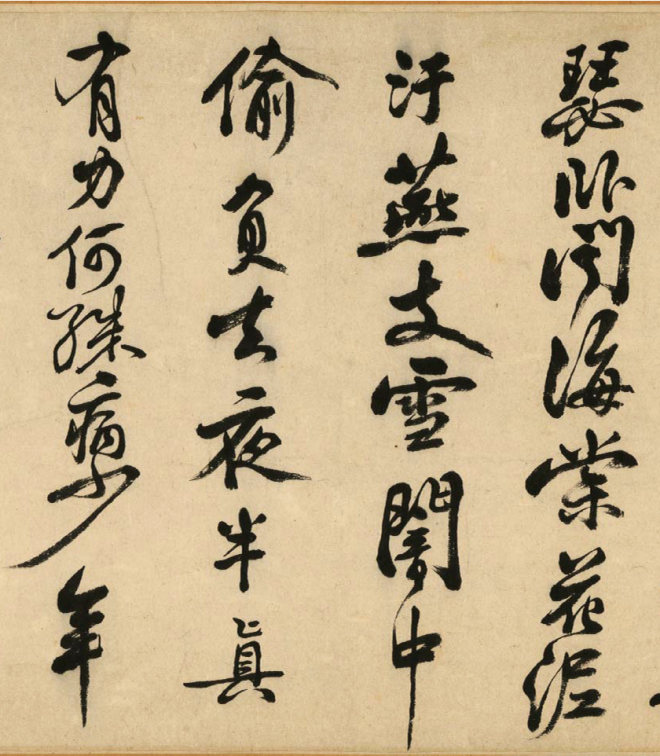 瑟卧聞海棠花泥
汙燕支雪闇中
偷負去夜半真
有力何殊病少年